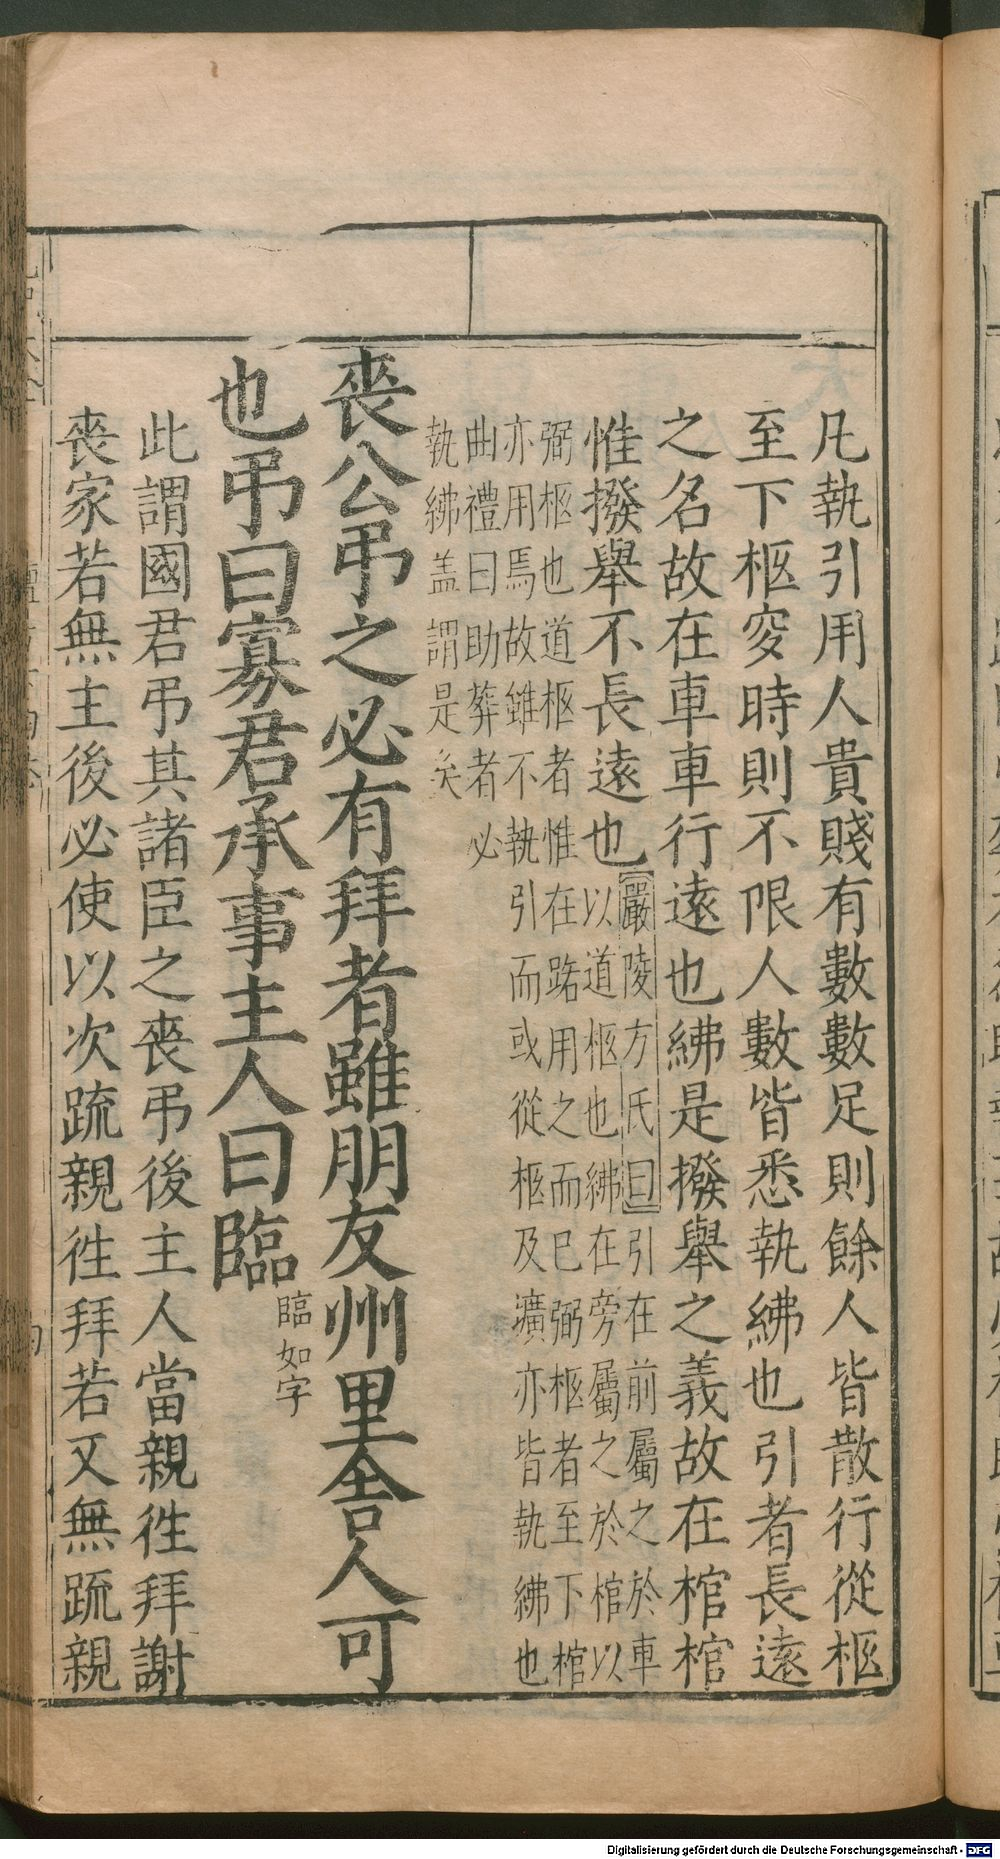 凡執引用人貴賤有數數足則餘人皆散行從柩
至下柩窆時則不限人數皆悉執紼也引者長遠
之名故在車車行遠也紼是撥舉之義故在棺棺
惟撥舉不長遠也
嚴陵方氏曰引在前屬之於車
以道柩也紼在旁屬之於棺以
弼柩也道柩者惟在路用之而已弼柩者至下棺
亦用焉故雖不執引而或從柩及壙亦皆執紼也
曲禮曰助葬者必
執紼盖謂是矣
喪公弔之必有拜者雖朋友州里舍人可
也弔曰寡君承事主人曰臨
臨如字
此謂國君弔其諸臣之喪弔後主人當親徃拜謝
喪家若無主後必使以次䟽親徃拜若又無䟽親
Digitalisierung gefördert durch die Deutsche Forschungsgemeinschaft - DFG